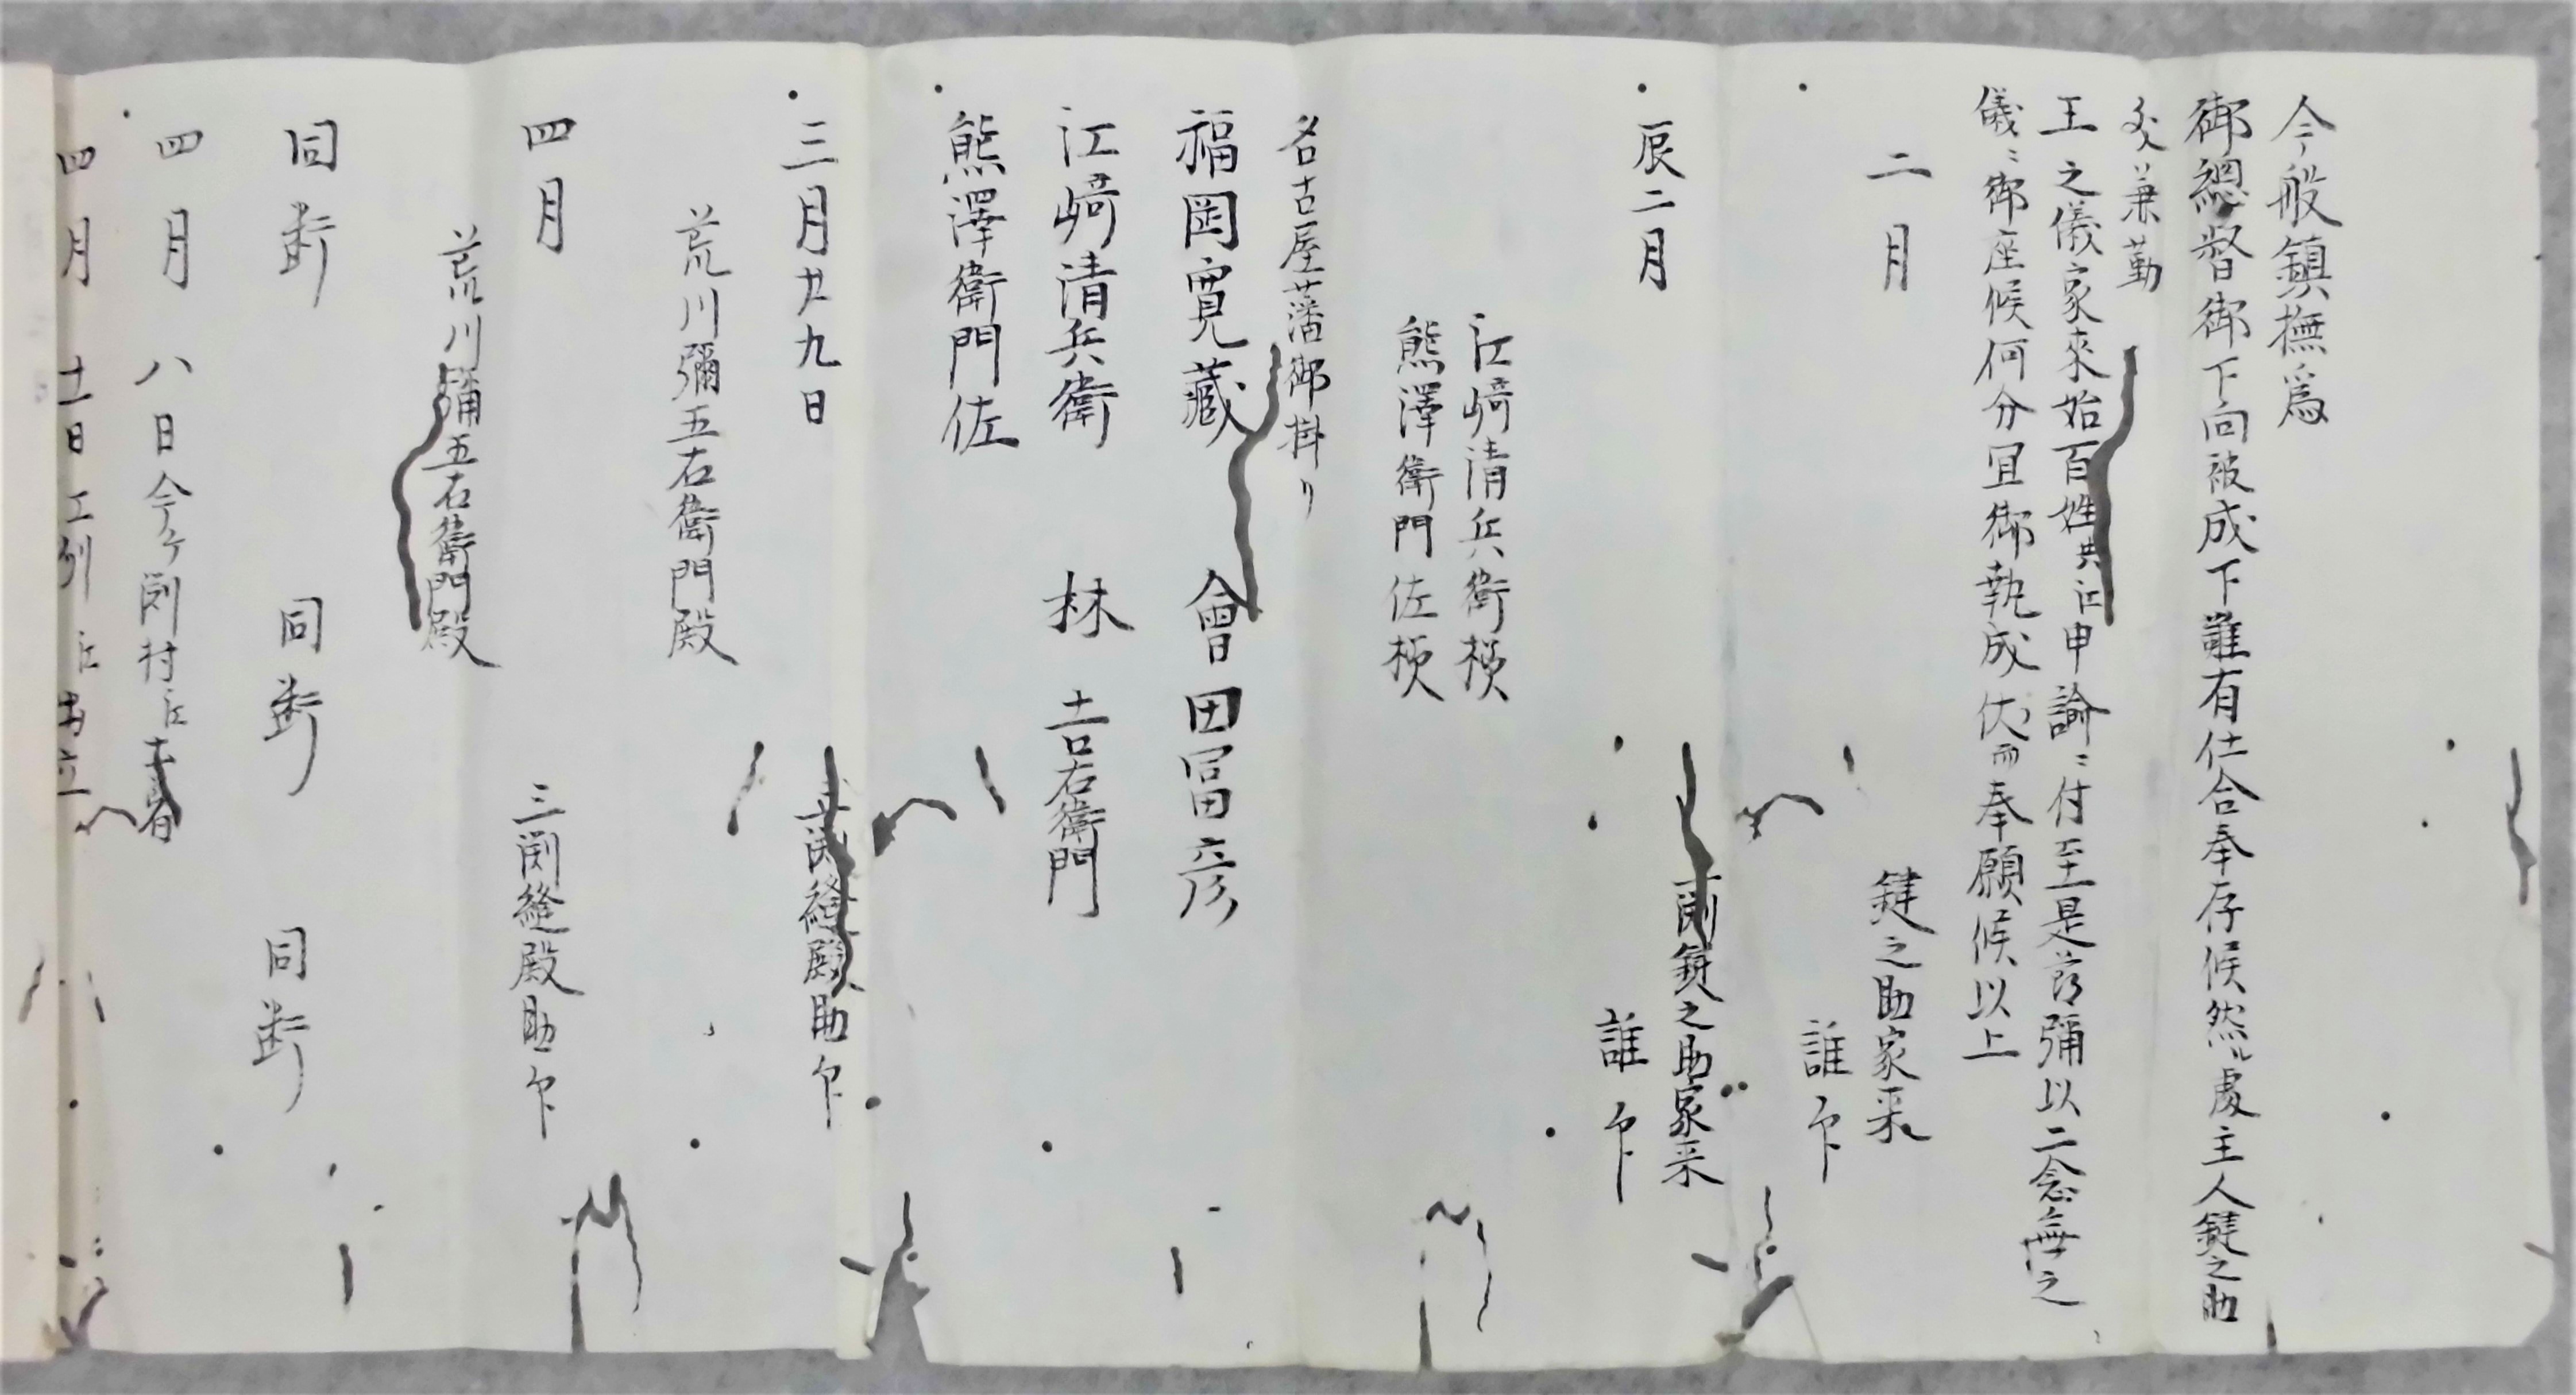 今般鎮撫為
御總督御下向被成下難有仕合奉存候然ル處主人鍵之助
王之儀家來始百姓共江申諭ニ付至是迠彌以二念無之
儀ニ御座候何分冝御執成伏而奉願候以上
二月
鍵之助家来
誰印
辰二月
鍵之助家来
誰印
江﨑清兵衛様
熊澤衛門佐様
名古屋藩御掛り
福岡寛藏 會田冨彦
江﨑清兵衛 林吉右衛門
熊澤衛門佐
三月廿九日
縫殿助印
荒川彌五右衛門殿
四月
三渕縫殿助印
荒川彌五右衛門殿
同断 同断 同断
四月八日今ケ渕村江
四月十一日